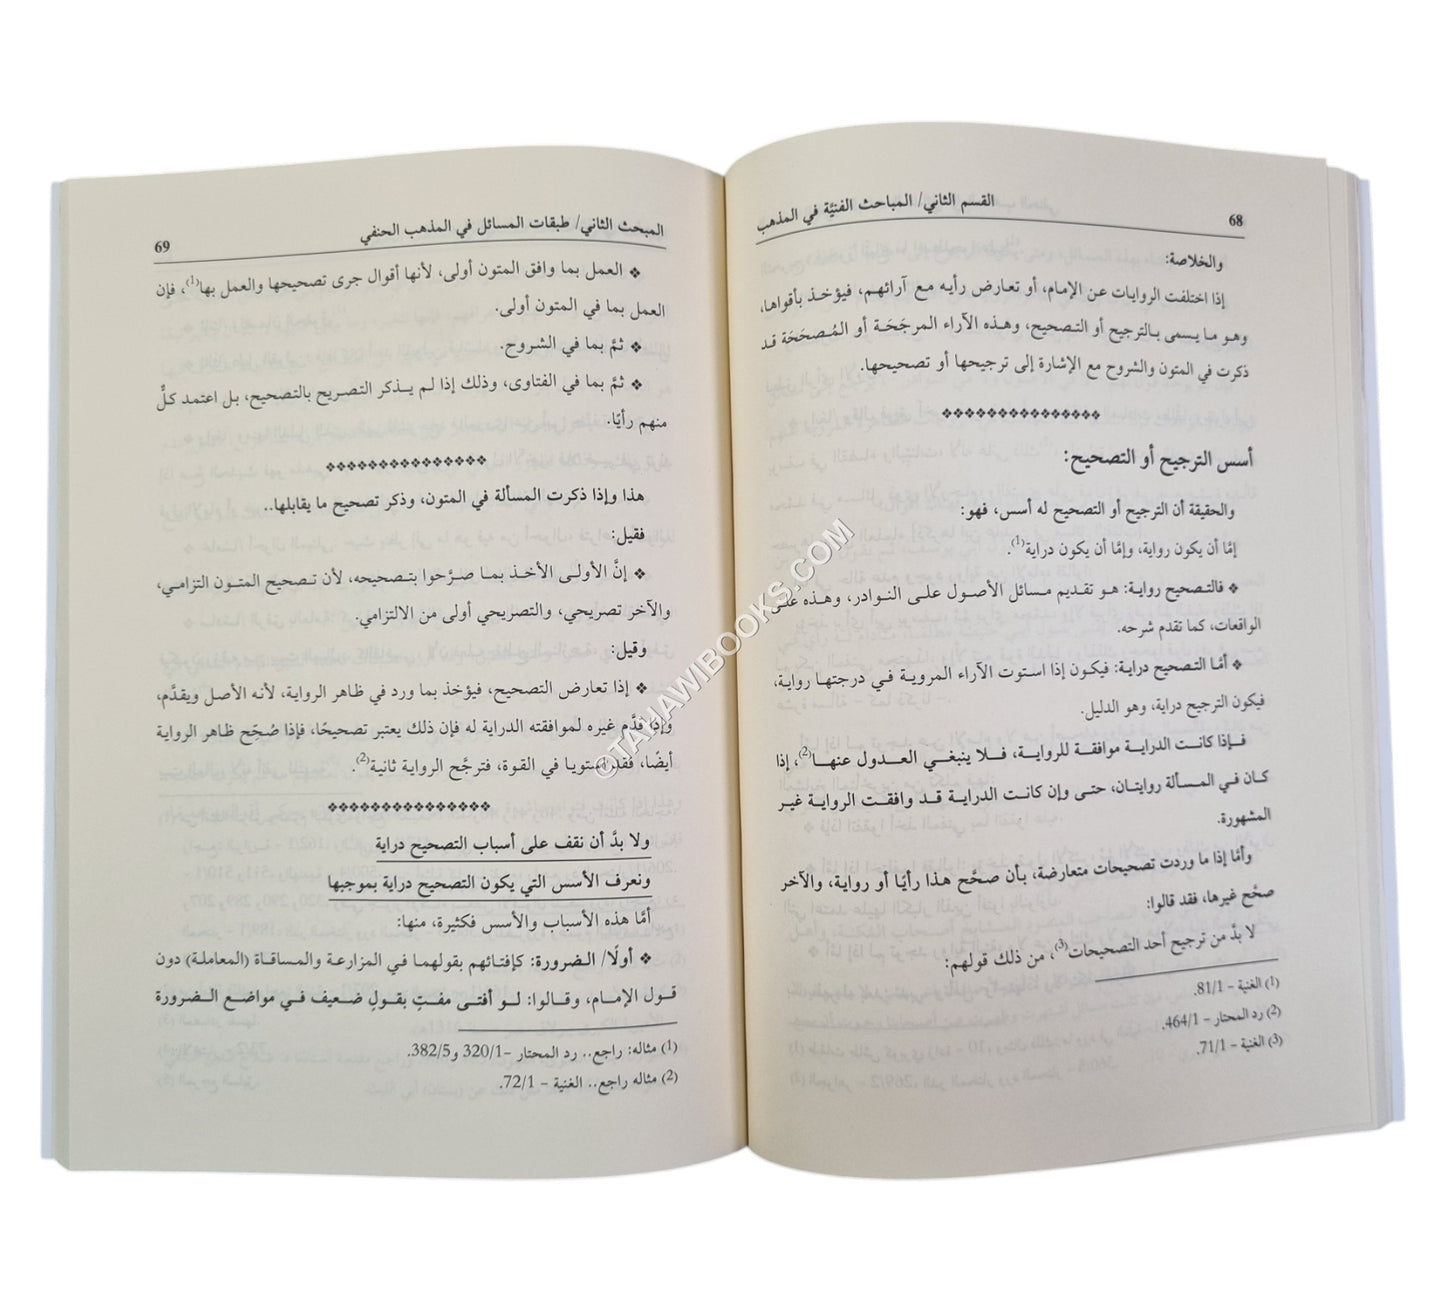 68
القسم الثاني/ المباحث الفنيَّة في المذهب
والخلاصة:
إذا اختلفت الروايات عن الإمام، أو تعارض رأيه مع آرائهم، فيؤخذ بأقواها،
وهو ما يسمى بالترجيح أو التصحيح، وهذه الآراء المرجَحَة أو المُصحَحَة قد
ذكرت في المتون والشروح مع الإشارة إلى ترجيحها أو تصحيحها.
أسس الترجيح أو التصحيح:
والحقيقة أن الترجيح أو التصحيح له أسس، فهو:
إمَّا أن يكون رواية، وإمَّا أن يكون دراية(1).
❖ فالتصحيح رواية: هو تقديم مسائل الأصول على النوادر، وهذه على
الواقعات، كما تقدم شرحه.
❖ أمَّا التصحيح دراية: فيكون إذا استوت الآراء المروية في درجتها رواية،
فيكون الترجيح دراية، وهو الدليل.
فإذا كانت الدراية موافقة للرواية، فلا ينبغي العدول عنها(2)، إذا
كان في المسألة روايتان، حتى وإن كانت الدراية قد وافقت الرواية غير
المشهورة.
وأمَّا إذا ما وردت تصحيحات متعارضة، بأن صحَّح هذا رأيًا أو رواية، والآخر
صحَّح غيرها، فقد قالوا:
لا بدَّ من ترجيح أحد التصحيحات(3)، من ذلك قولهم:
(1) الغنية – 81/1.
(2) رد المحتار – 464/1.
(3) الغنية – 71/1.
المبحث الثاني/ طبقات المسائل في المذهب الحنفي
69
❖ العمل بما وافق المتون أولى، لأنها أقوال جرى تصحيحها والعمل بها(1)، فإن
العمل بما في المتون أولى.
❖ ثمَّ بما في الشروح.
❖ ثمَّ بما في الفتاوى، وذلك إذا لم يذكر التصريح بالتصحيح، بل اعتمد كلٌّ
منهم رأيًا.
هذا وإذا ذكرت المسألة في المتون، وذكر تصحيح ما يقابلها..
فقيل:
❖ إنَّ الأولى الأخذ بما صرَّحوا بتصحيحه، لأن تصحيح المتون التزامي،
والآخر تصريحي، والتصريحي أولى من الالتزامي.
وقيل:
❖ إذا تعارض التصحيح، فيؤخذ بما ورد في ظاهر الرواية، لأنه الأصل ويقدَّم،
وإذا قدَّم غيره لموافقته الدراية له فإن ذلك يعتبر تصحيحًا، فإذا صُحِّح ظاهر الرواية
أيضًا، فقد استويا في القوة، فترجَّح الرواية ثانية(2).
ولا بدَّ أن نقف على أسباب التصحيح دراية
ونعرف الأسس التي يكون التصحيح دراية بموجبها
أمَّا هذه الأسباب والأسس فكثيرة، منها:
❖ أولًا/ الضرورة: كإفتائهم بقولهما في المزارعة والمساقاة (المعاملة) دون
قول الإمام، وقالوا: لو أفتى مفتٍ بقولٍ ضعيف في مواضع الضرورة
(1) مثاله: راجع.. رد المحتار –320/1 و382/5.
(2) مثاله راجع.. الغنية – 72/1.
©TAHAWIBOOKS.COM